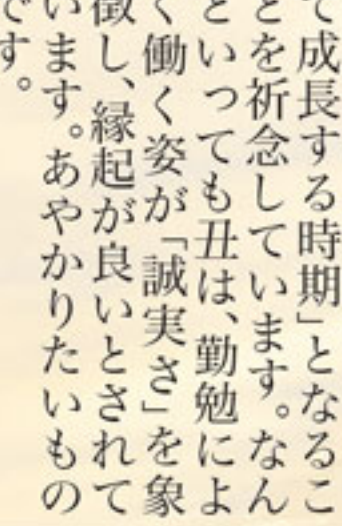 て成長する時期」となるこ
とを祈念しています。なん
といっても丑は、勤勉によ
く働く姿が「誠実さ」を象
徴し、縁起が良いとされて
います。あやかりたいもの
です。